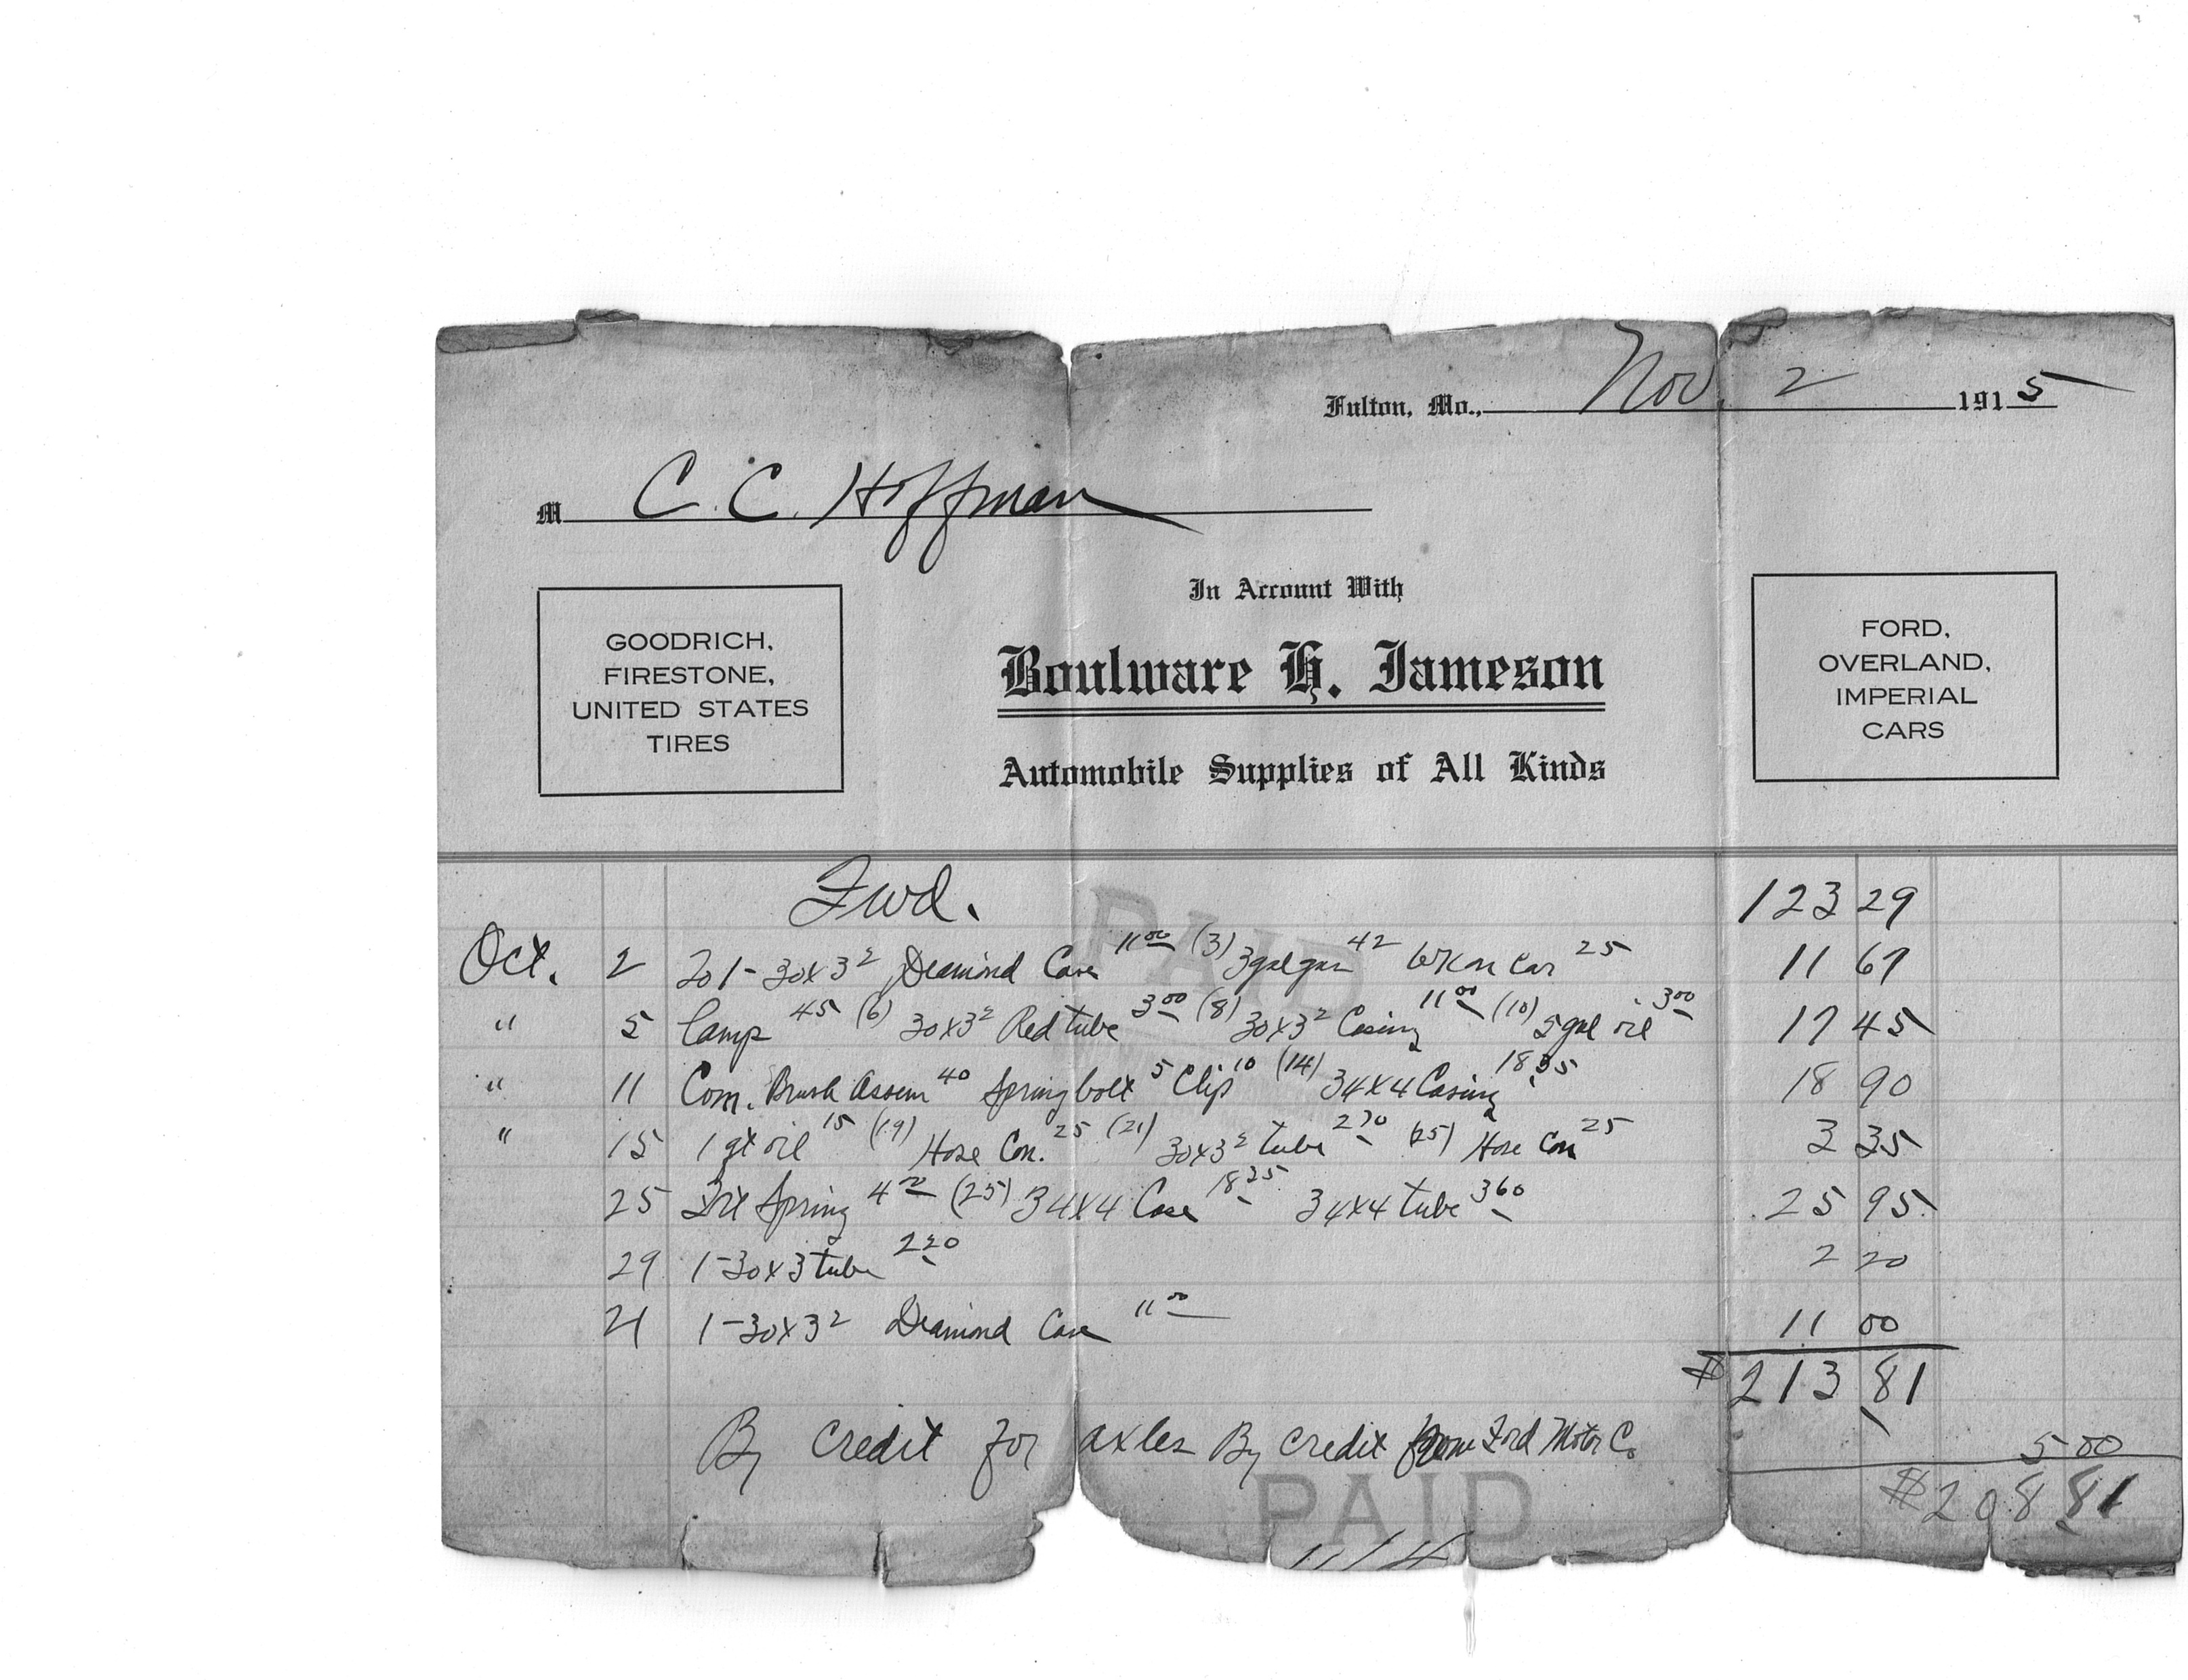 Fulton, Mo., Nov. 2 1915
M C. C. Hoffman
In Account With
GOODRICH,
FIRESTONE,
UNITED STATES
TIRES
Boulware H. Jameson
Automobile Supplies of All Kinds
FORD,
OVERLAND,
IMPERIAL
CARS
Fwd. 123 29
Oct. 2 To 1-30x3² Diamond Case 11 00 (3) 3 gal gas 42 Wk on Car 25 11 67
" 5 Lamp 45 (6) 30x3² Red tube 3 00 (8) 30x3² Casing 11 00 (10) 5 gal oil 3 00 17 45
" 11 Com. Brush Assem 40 Spring bolt 5 Clip 10 (14) 34x4 Casing 18 35 18 90
" 15 1 qt oil 15 (19) Hose Con. 25 (21) 30x3² tube 2 70 (25) Hose Con 25 3 35
25 Spring 4 (25) 34x4 Case 18 25 34x4 tube 3 60 25 95
29 1-30x3 tube 2 20 2 20
21 1-30x3² Diamond Case 11 00 11 00
$213 81
By Credit for axles By Credit from Ford Motor Co 5 00
$208 81
PAID
PAID
11/4